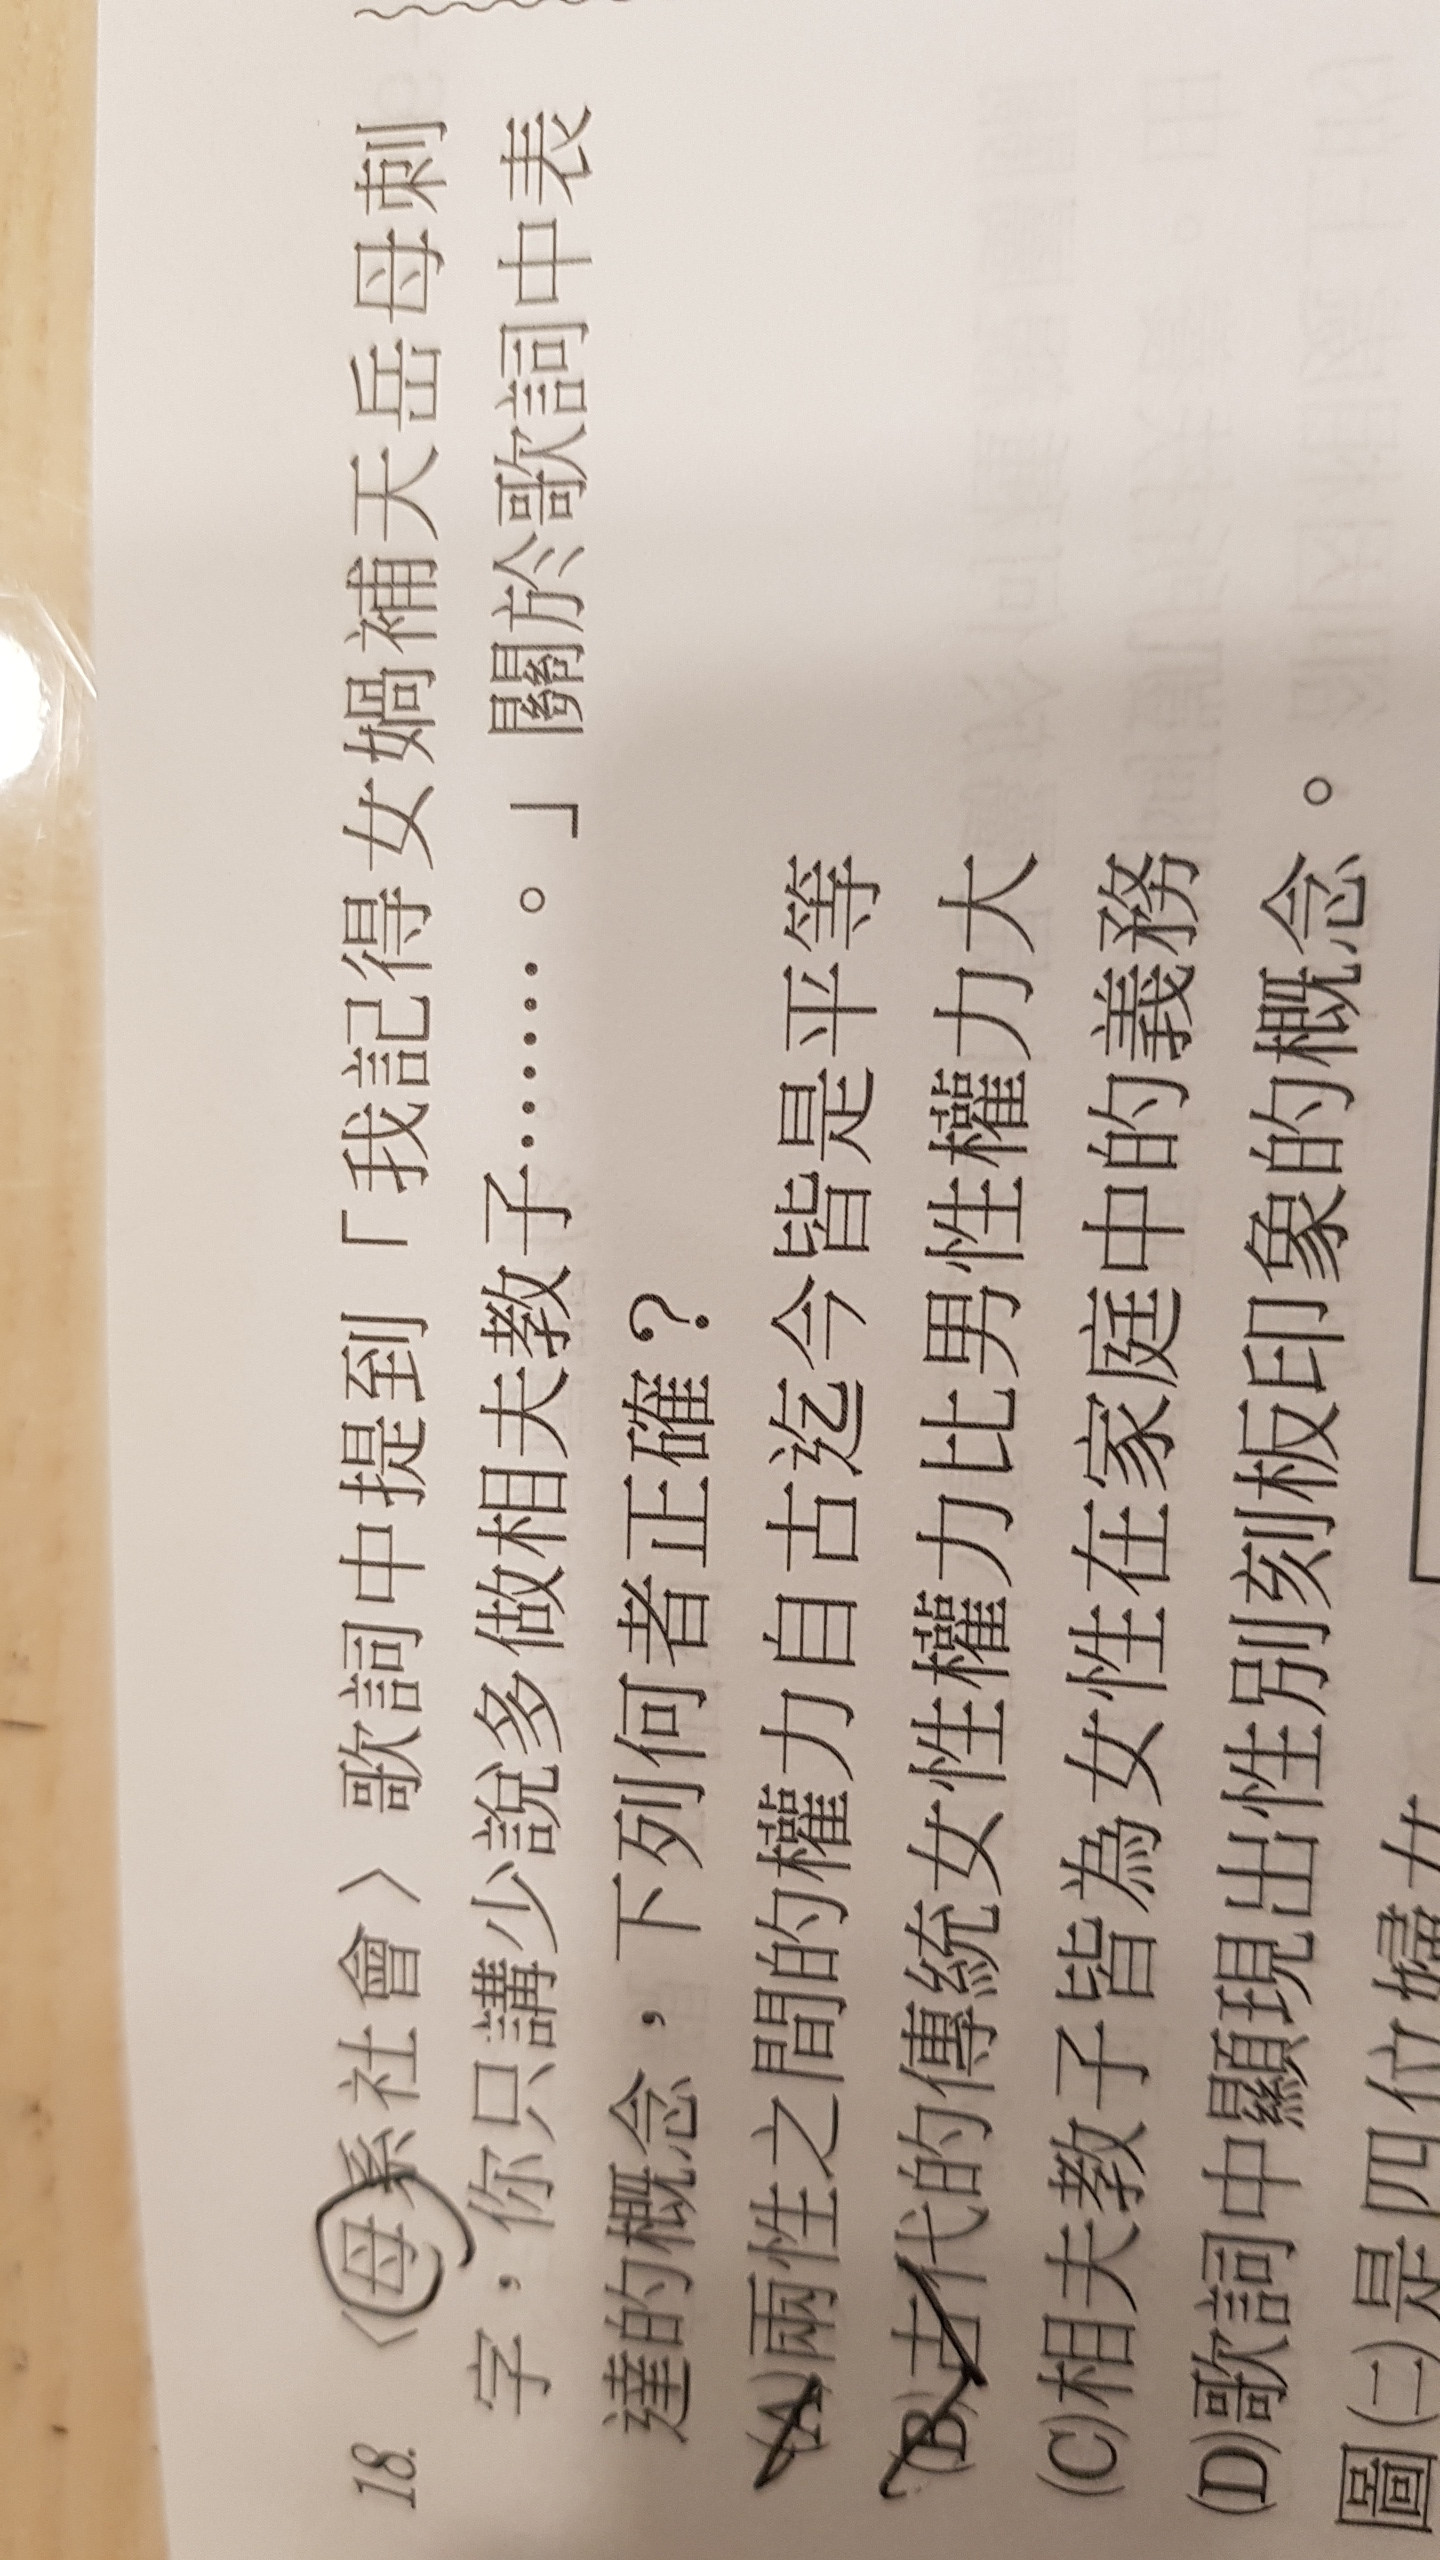 18. 〈母系社會〉歌詞中提到「我記得女媧補天岳母刺
字,你只講少說多做相夫教子……。」關於歌詞中表
達的概念,下列何者正確?
(A)兩性之間的權力自古迄今皆是平等
(B)古代的傳統女性權力比男性權力大
(C)相夫教子皆為女性在家庭中的義務
(D)歌詞中顯現出性別刻板印象的概念。
圖(二)是四位婦女